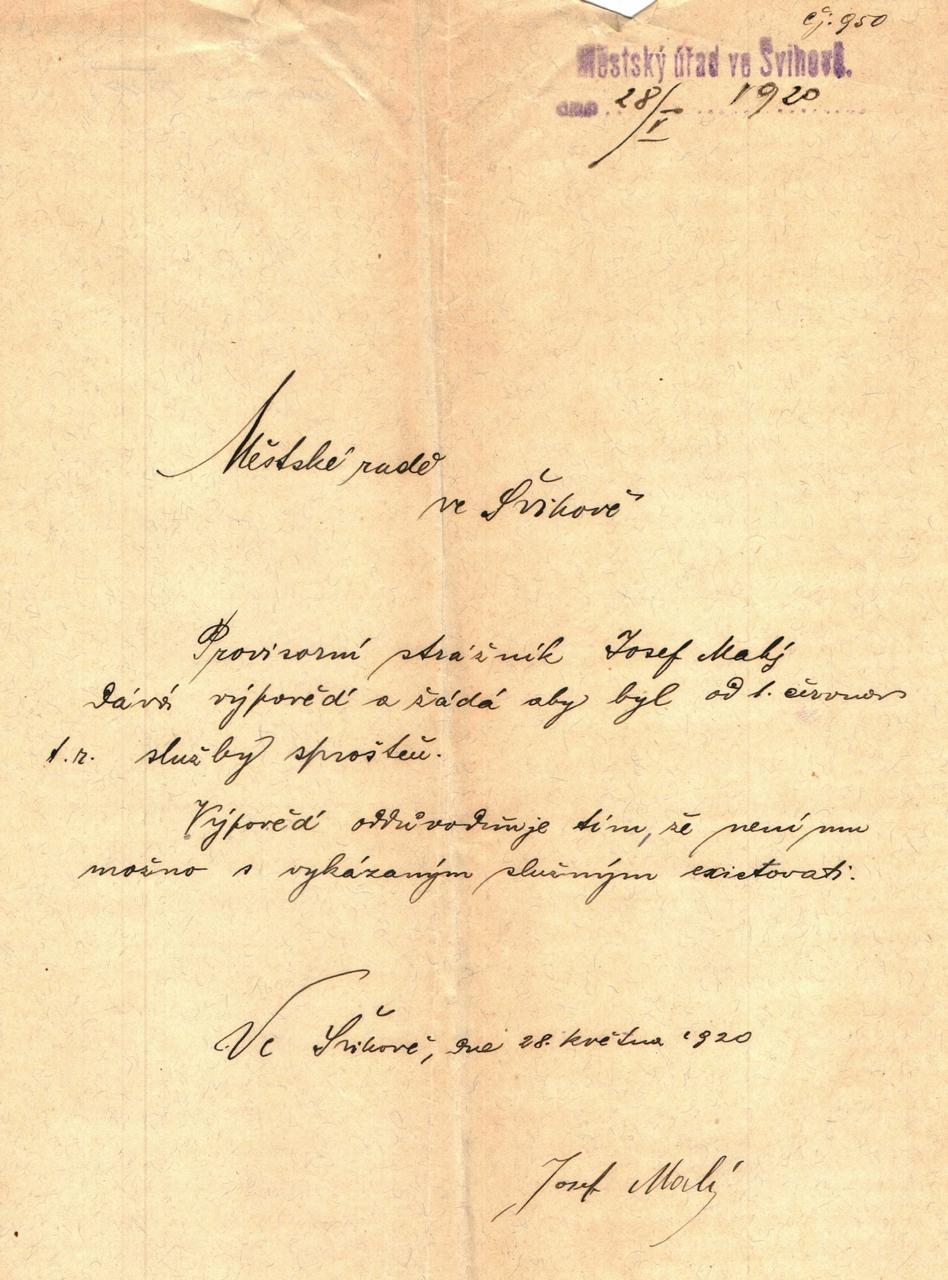 čj. 950
Městský úřad ve Švihově.
dne 28/V 1920
Městské radě
ve Švihově
Provisorní strážník Josef Malý
dává výpověď a žádá aby byl od 1. června
t.r. služby sproštěn.
Výpověď oddůvodňuje tím, že není mu
možno s vykázaným služným existovati.
Ve Švihově, dne 28. května 1920
Josef Malý